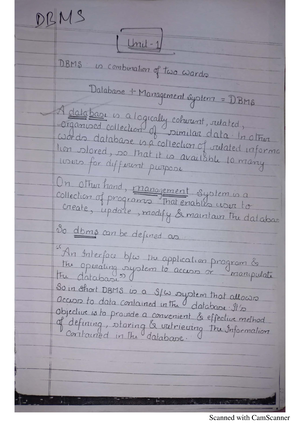 DBMS
Unit-1
DBMS is combination of two words
Database + Management System = DBMS
A database is a logically coherent, related,
organised collection of similar data. In other
words database is a collection of related informa
tion stored, so that it is available to many
users for different purpose
On other hand, management system is a
collection of programs that enables user to
create, update, modify & maintain the databas
So dbms can be defined as
"An Interface b/w the application program &
the operating system to access or manipulate
the database"
So in short DBMS is a s/w system that allows
access to data contained in the database. It's
objective is to provide a convenient & effective method
of defining, storing & retrieving the Information
contained in the database.
Scanned with CamScanner